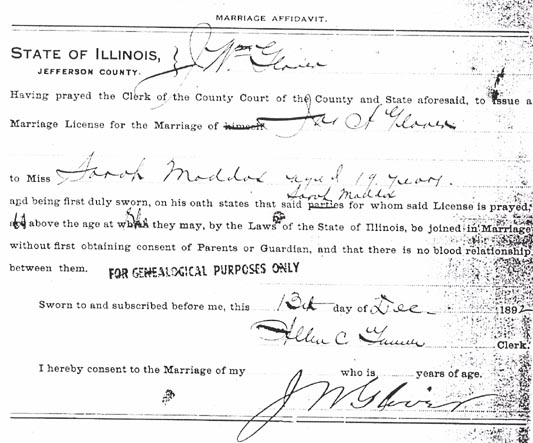 MARRIAGE AFFIDAVIT.
STATE OF ILLINOIS, } J. Wm Glover
JEFFERSON COUNTY.
Having prayed the Clerk of the County Court of the County and State aforesaid, to issue a
Marriage License for the Marriage of himself Jas A Glover
to Miss Sarah Maddox aged 19 years.
Sarah Maddox
and being first duly sworn, on his oath states that said parties for whom said License is prayed,
above the age at they may, by the Laws of the State of Illinois, be joined in Marriage
without first obtaining consent of Parents or Guardian, and that there is no blood relationship
between them. FOR GENEALOGICAL PURPOSES ONLY
Sworn to and subscribed before me, this 13th day of Dec 1892
Allen C Tanner Clerk.
I hereby consent to the Marriage of my who is years of age.
J W Glover